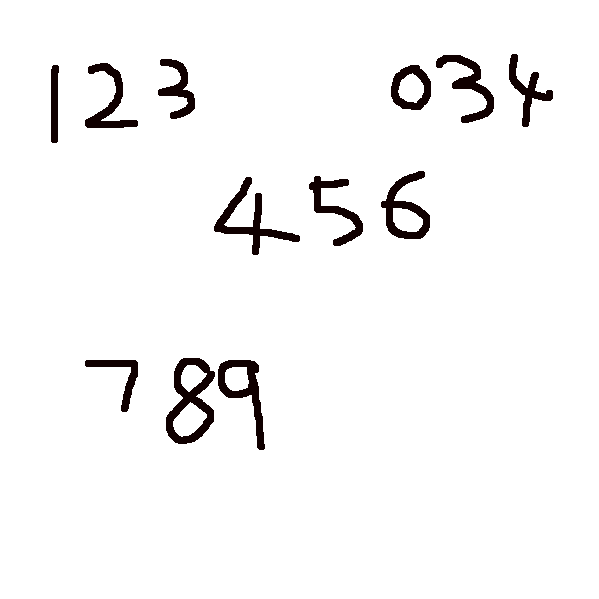 123 034
456
789